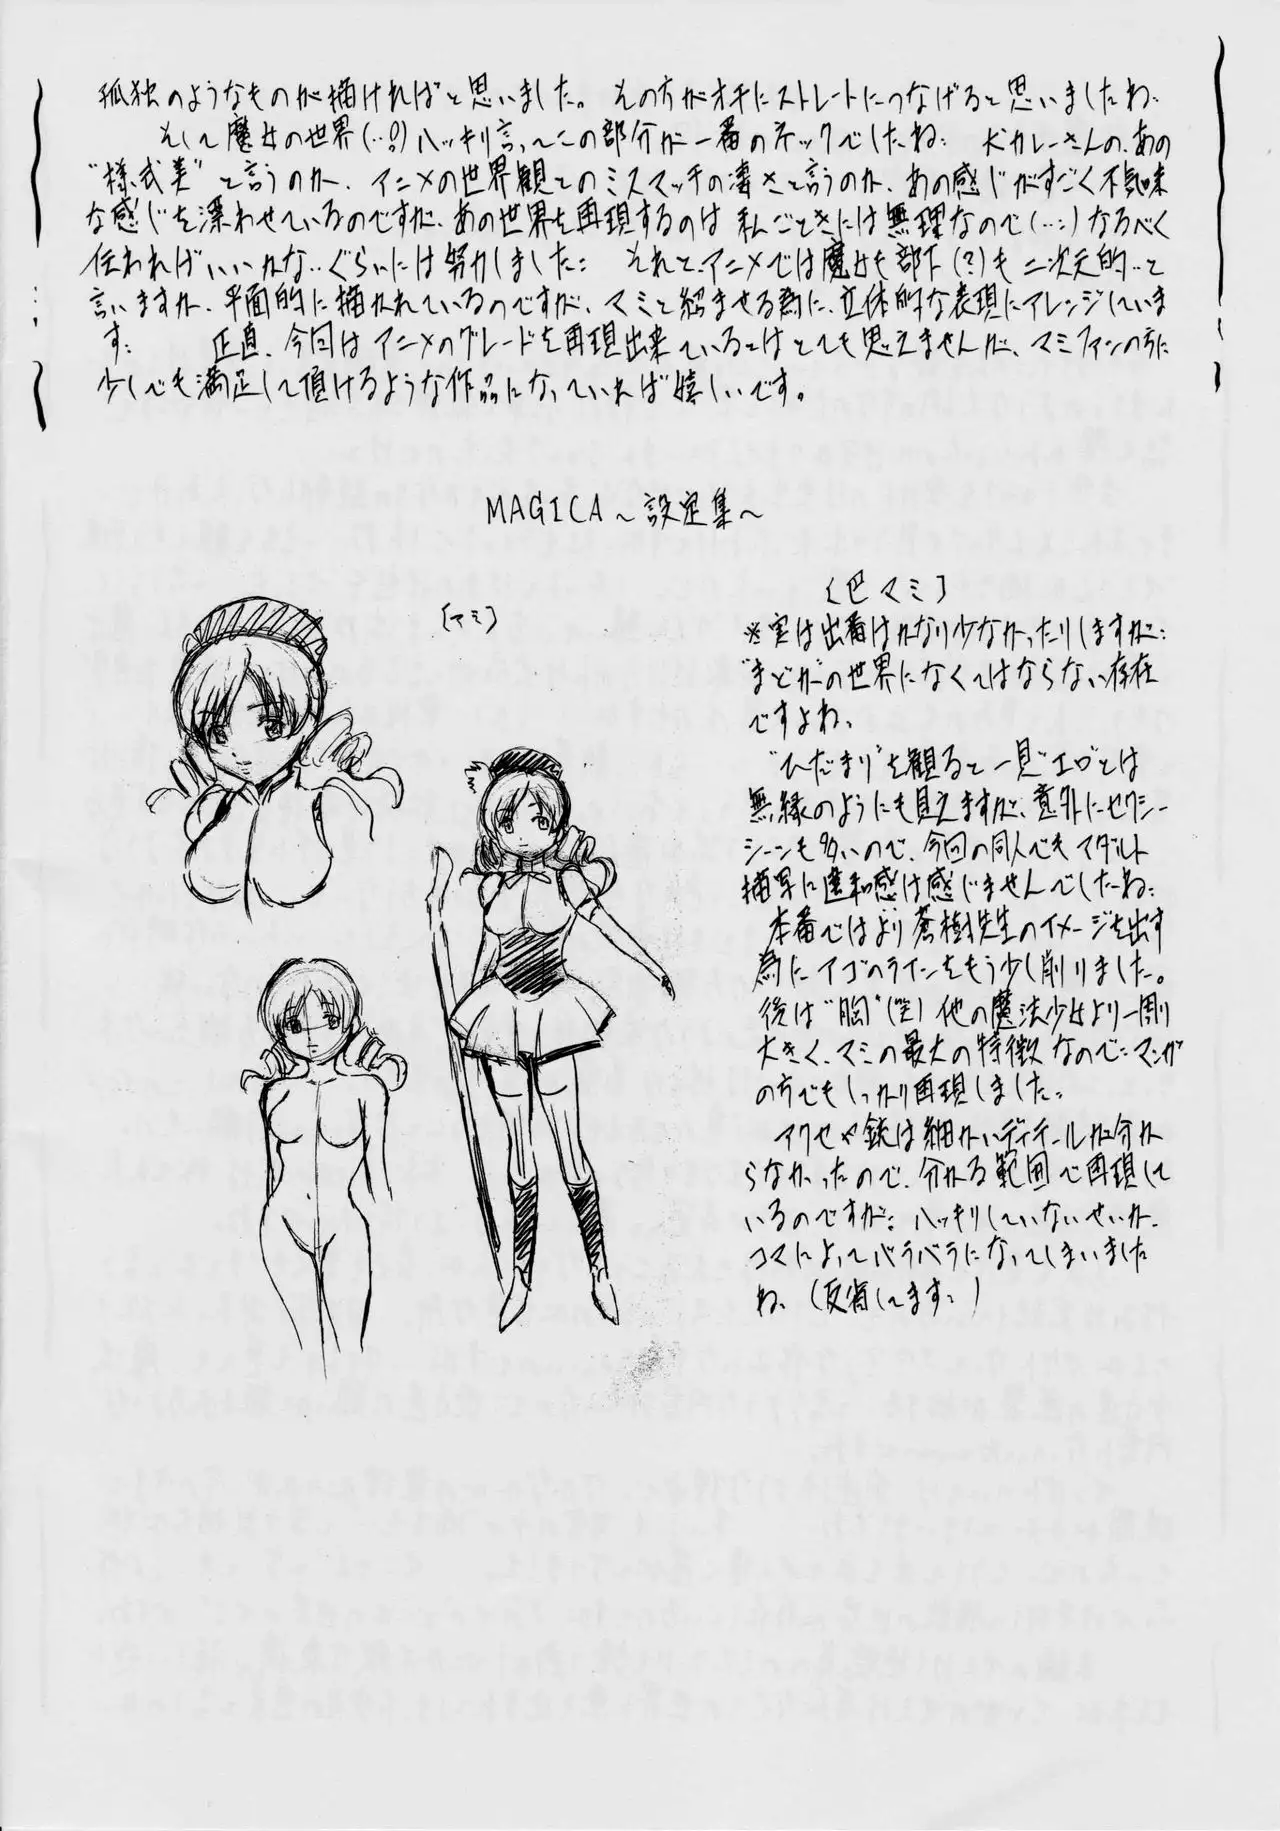 孤独のようなものが描ければと思いました。その方がオチにストレートにつなげると思いましたね、
そして魔女の世界(…?)ハッキリ言ってこの部分が一番のネックでしたね: 犬カレーさんの、あの
"様式美"と言うのか、アニメの世界観とのミスマッチの凄さと言うのか、あの感じがすごく不気味
な感じを漂わせているのですが、あの世界を再現するのは私ごときには無理なので(…:)なるべく
伝わればいいかな..ぐらいには努力しました: それと、アニメでは魔女も部下(?)も二次元的..と
言いますか、平面的に描かれているのですが、マミと絡ませる為に、立体的な表現にアレンジしていま
す: 正直、今回はアニメのグレードを再現出来ているとはとても思えませんが、マミファンの方に
少しでも満足して頂けるような作品になっていれば嬉しいです。
MAGICA～設定集～
〔マミ〕
〔巴マミ〕
※実は出番はかなり少なかったりしますが:
"まどか"の世界になくてはならない存在
ですよね、
"ひだまり"を観ると一見"エロ"とは
無縁のようにも見えますが、意外にセクシー
シーンも多いので、今回の同人でもアダルト
描写に違和感は感じませんでしたね:
本番ではより蒼樹先生のイメージを出す
為にアゴのラインをもう少し削りました。
後は"胸"(笑)他の魔法少女より一割
大きく、マミの最大の特徴なので:マンガ
の方でもしっかり再現しました:
アクセや銃は細かいディテールが分か
らなかったので、分かる範囲で再現して
いるのですが: ハッキリしていないせいか、
コマによってバラバラになってしまいました
ね、(反省してます:)